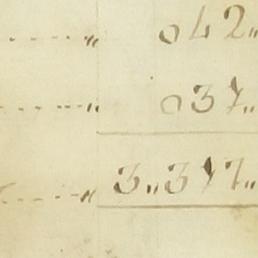 ..... „ 042„
..... „ 037„
..... „ 3„377„